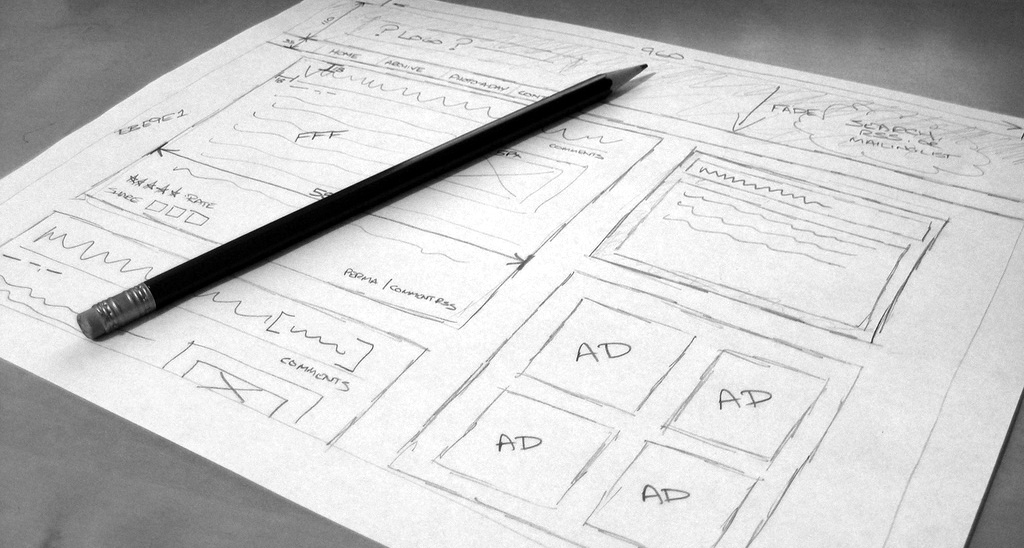 ? LOGO ?
960
HOME ARCHIVE PHOTO-A-DAY CONT
FADE
SEARCH/
RSS OR
MAILINGLIST
EEEFE1
FFF
COMMENTS
RATE
SHARE
PERMA / COMMENT RSS
COMMENTS
AD
AD
AD
AD